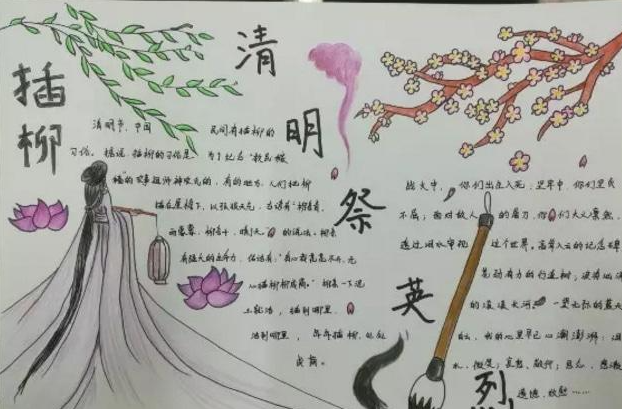 插柳
清明祭英烈
清明节,中国民间有插柳的
习俗。据说,插柳的习俗是为了纪念"教民稼
穑"的农事祖师神农氏的。有的地方,人们把柳
插在屋檐下,以预报天气,古谚有"柳条青,
雨蒙蒙;柳条干,晴了天"的说法。柳条
有强大的生命力,俗话有:"有心栽花花不开,无
心插柳柳成荫。"柳条一下泥
土就活,插到哪里,
活到哪里,年年插柳,处处
成荫。
战火中,你们出生入死;坚牢中,你们坚贞
不屈;面对敌人的屠刀,你们大义凛然,
透过泪水审视这个世界。高耸入云的纪念碑
苍劲有力的行道树,
的滚滚长河,一望无际的蓝天
我的心里早已心潮澎湃:泪
水、微笑;哀愁、敬佩;思念、感激
遗憾、欣慰……